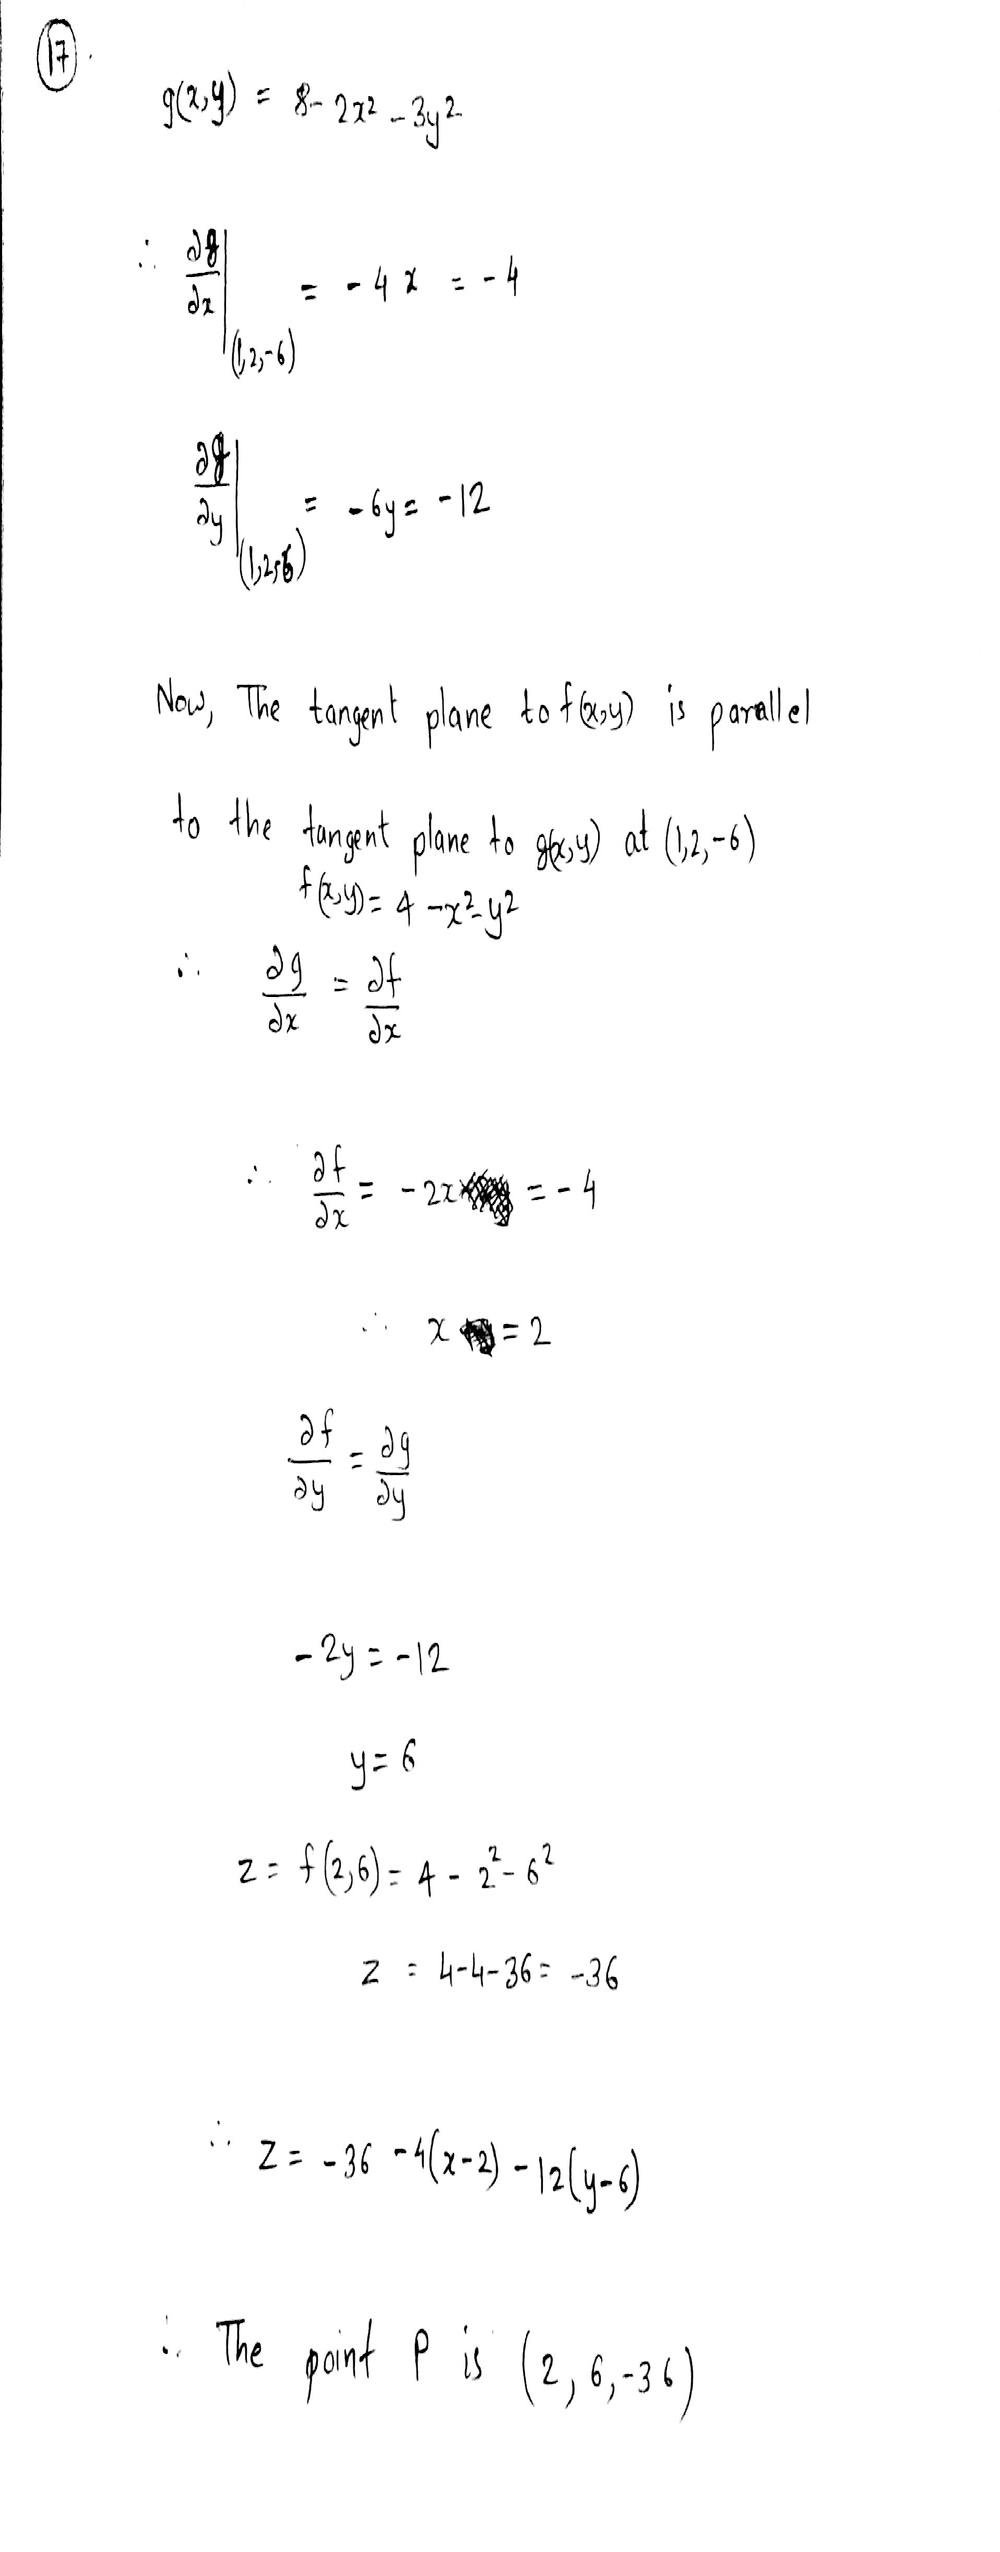 17.
g(x,y) = 8-2x² -3y²
∴ ∂g/∂x |(1,2,-6) = -4x = -4
∂g/∂y |(1,2,-6) = -6y = -12
Now, The tangent plane to f(x,y) is parallel
to the tangent plane to g(x,y) at (1,2,-6)
f(x,y) = 4 -x²-y²
∴ ∂g/∂x = ∂f/∂x
∴ ∂f/∂x = -2x = -4
∴ x = 2
∂f/∂y = ∂g/∂y
-2y = -12
y = 6
z = f(2,6) = 4 - 2² - 6²
z = 4-4-36 = -36
∴ z = -36 -4(x-2) -12(y-6)
∴ The point P is (2, 6, -36)